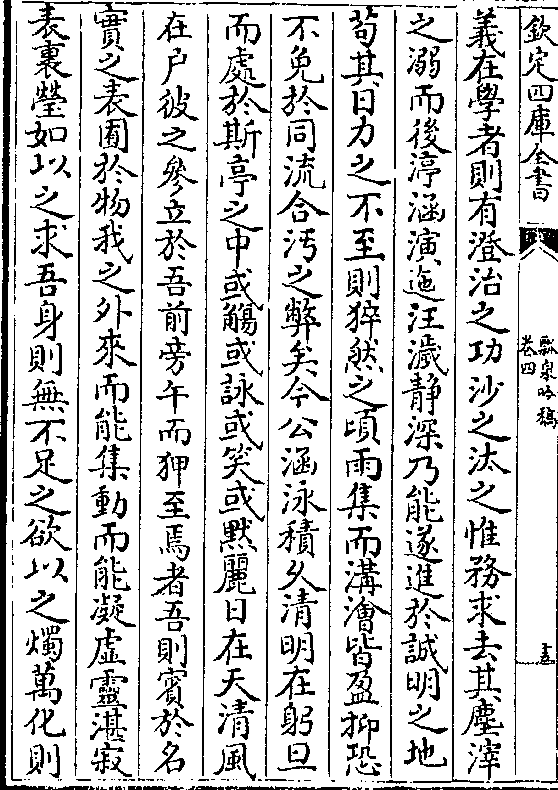 欽定四庫全書
瓢泉吟稿
卷四
義在學者則有澄治之功沙之汰之惟務求去其塵滓
之溺而後渟涵演迤汪濊静深乃能遂進於誠明之地
苟其日力之不至則猝然之頃雨集而溝澮皆盈抑恐
不免於同流合汚之弊矣今公涵泳積久清明在躬旦
而處於斯亭之中或觴或詠或笑或黙麗日在天清風
在户彼之參立於吾前旁午而狎至焉者吾則賓於名
實之表囿於物我之外來而能集動而能凝虚靈湛寂
表裏瑩如以之求吾身則無不足之欲以之燭萬化則